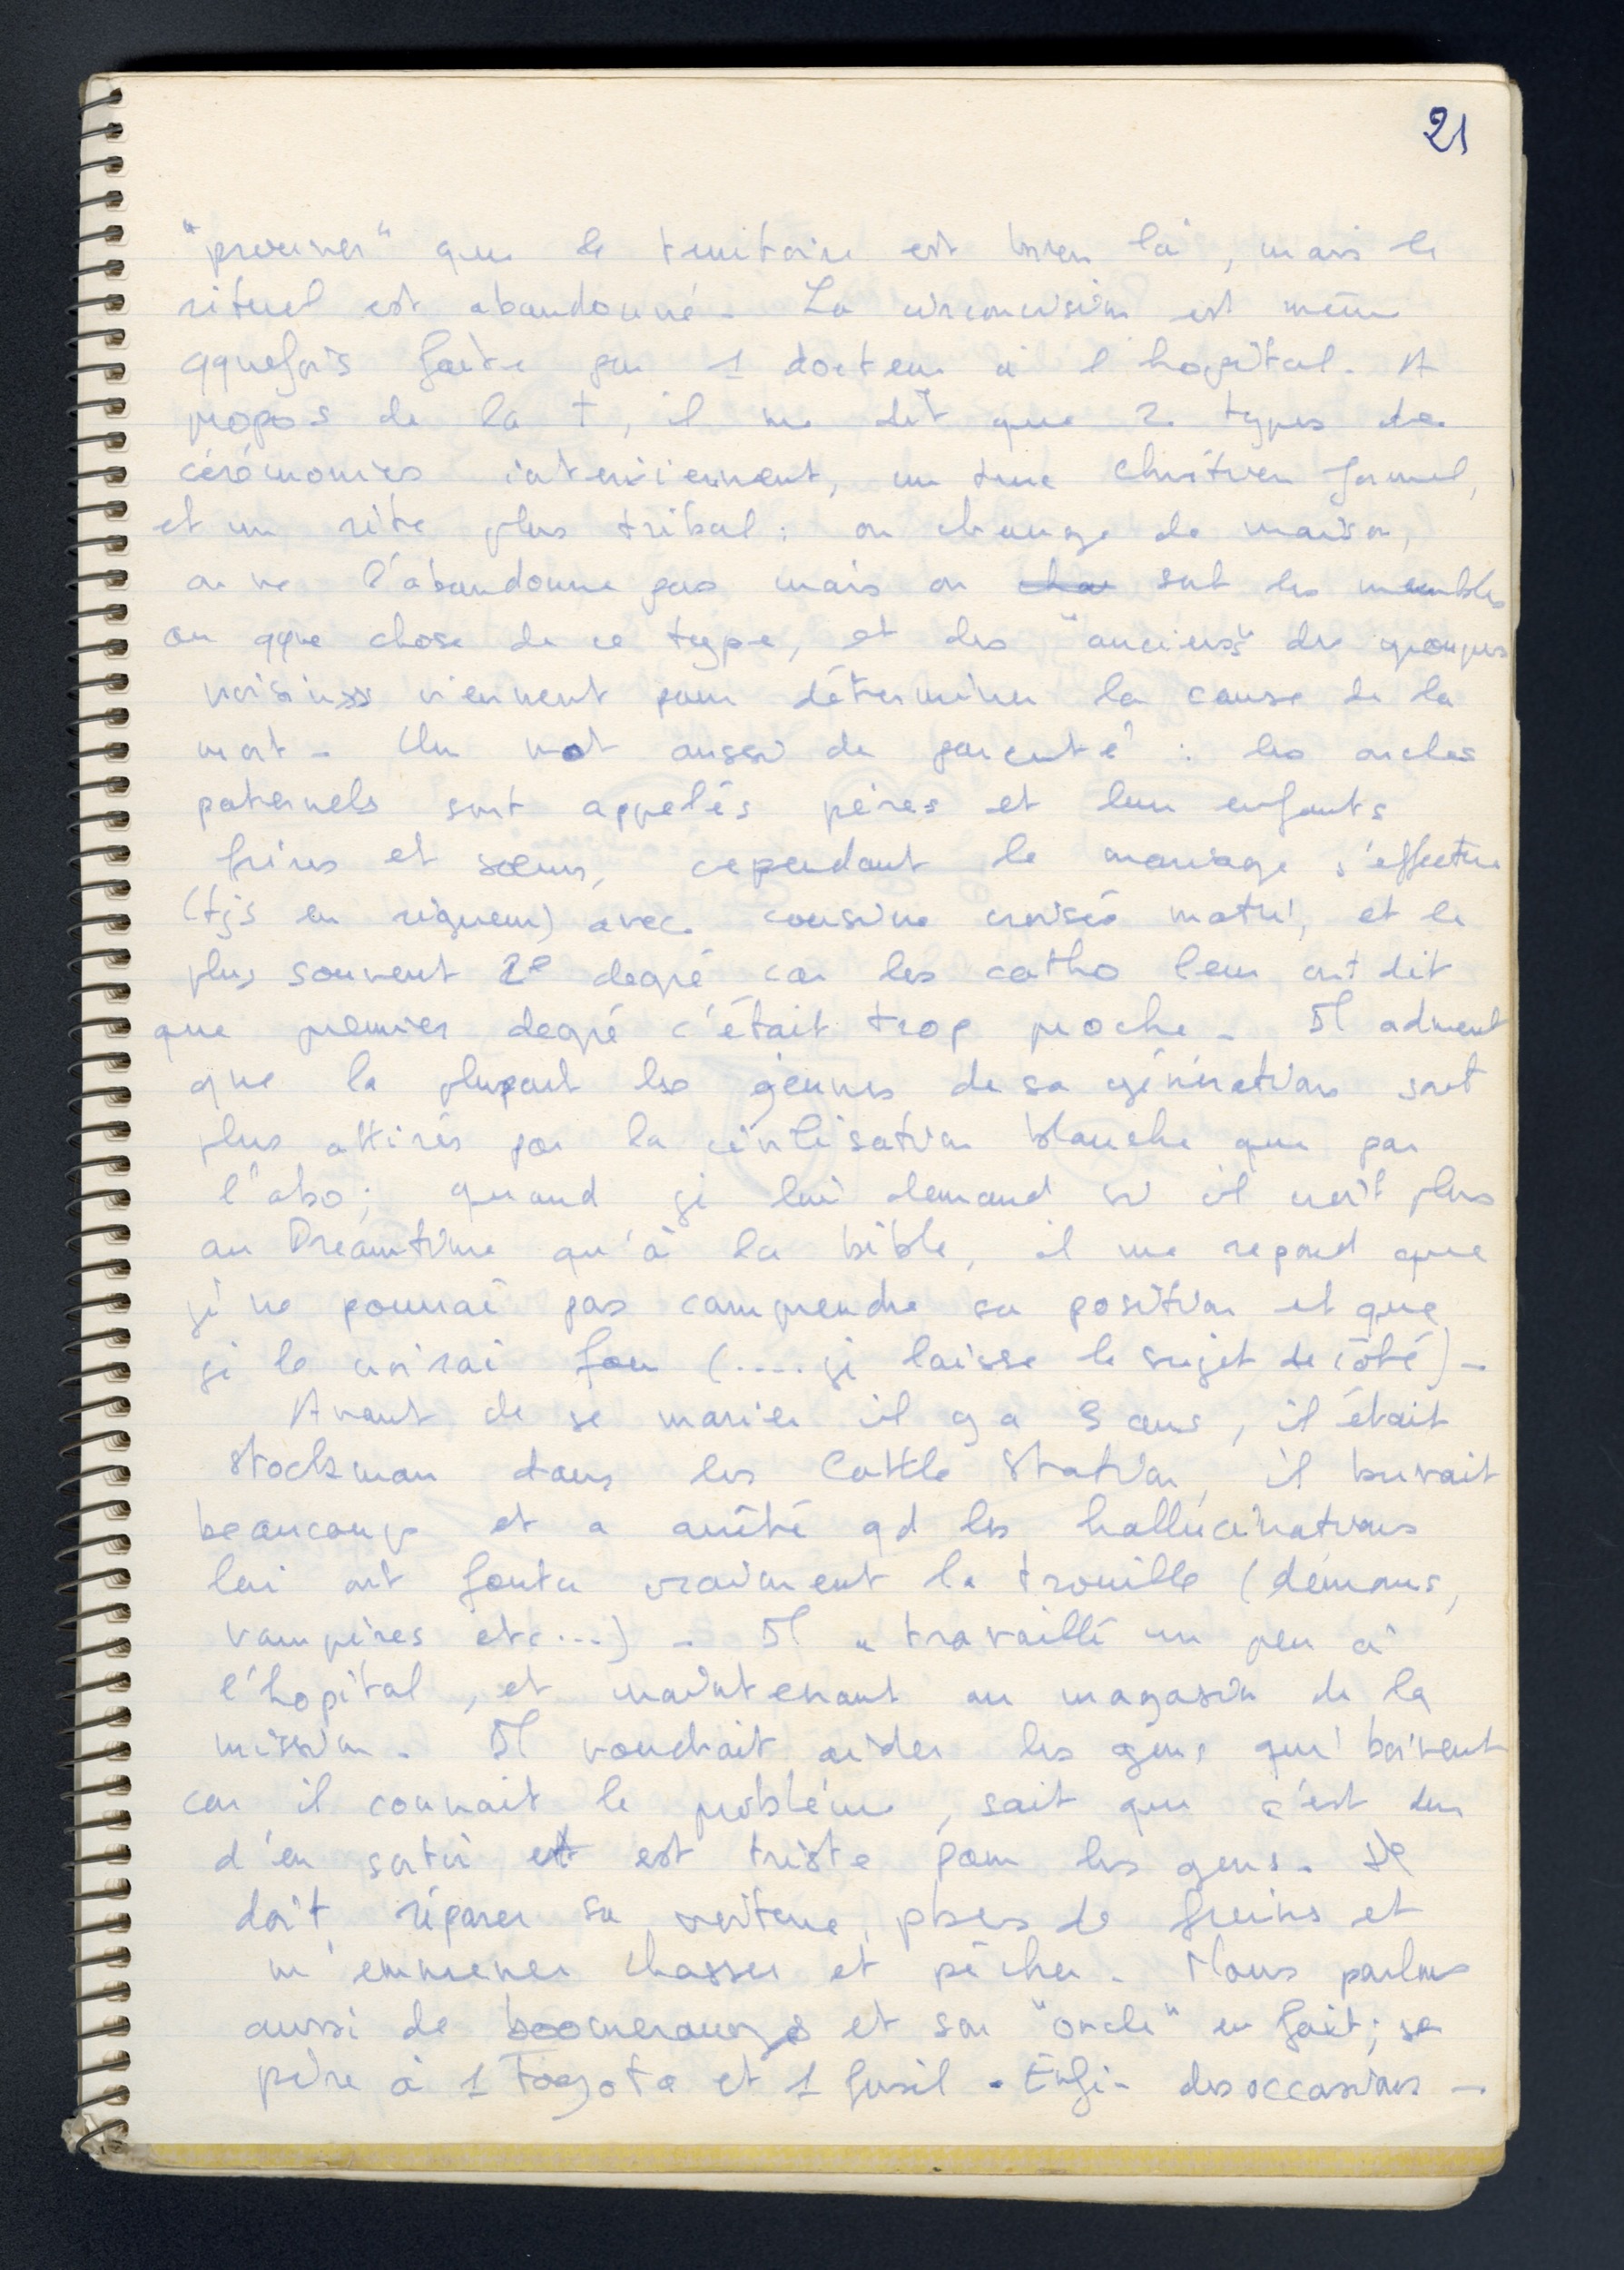 21
"prouver" que le territoire est bien là, mais le
rituel est abandonné - La circoncision est même
qquefois faite par 1 docteur à l'hopital. A
propos de la †, il me dit que 2 types de
cérémonies interviennent, un truc chrétien formel,
et un rite plus tribal : on change de maison,
on ne l'abandonne pas mais on sort les meubles
ou qque chose de ce type, et des "anciens" de groupes
voisins viennent pour déterminer la cause de la
mort - Un mot aussi de parenté : les oncles
paternels sont appelés pères et leur enfants
frères et soeurs, cependant le mariage s'effectue
(tjs en vigueur) avec cousine croisée matri, et le
plus souvent 2e degré car les catho leur ont dit
que premier degré c'était trop proche - Il admet
que la plupart les jeunes de sa génération sont
plus attirés par la civilisation blanche que par
l'abo ; quand je lui demand si il croit plus
au Dreamtime qu'à la bible, il me repond que
je ne pourrai pas comprendre sa position et que
je le croirai fou (.... je laisse le sujet de côté) -
Avant de se marier il y a 3 ans, il était
stockman dans les Cattle Station, il buvait
beaucoup et a arrêté qd les hallucinations
lui ont foutu vraiment la trouille (démons,
vampires etc...) - Il a travaillé un peu à
l'hopital, et maintenant au magasin de la
mission - Il voudrait aider les gens qui boivent
car il connait le problème, sait que c'est dur
d'en sortir et est triste pour les gens. Il
doit réparer sa voiture, pbs de freins et
m'emmener chasser et pêcher - Nous parlons
aussi de boomerangs et son "oncle" en fait ; se
père à 1 Toyota et 1 fusil. Enfi- des occasions -